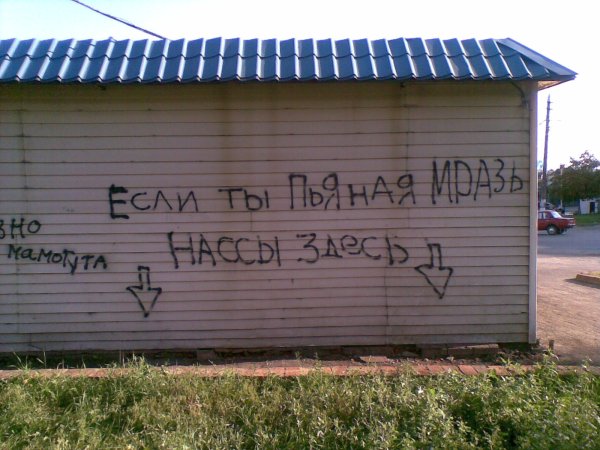 Если ты пьяная мразь
нассы здесь
вно
мамонута